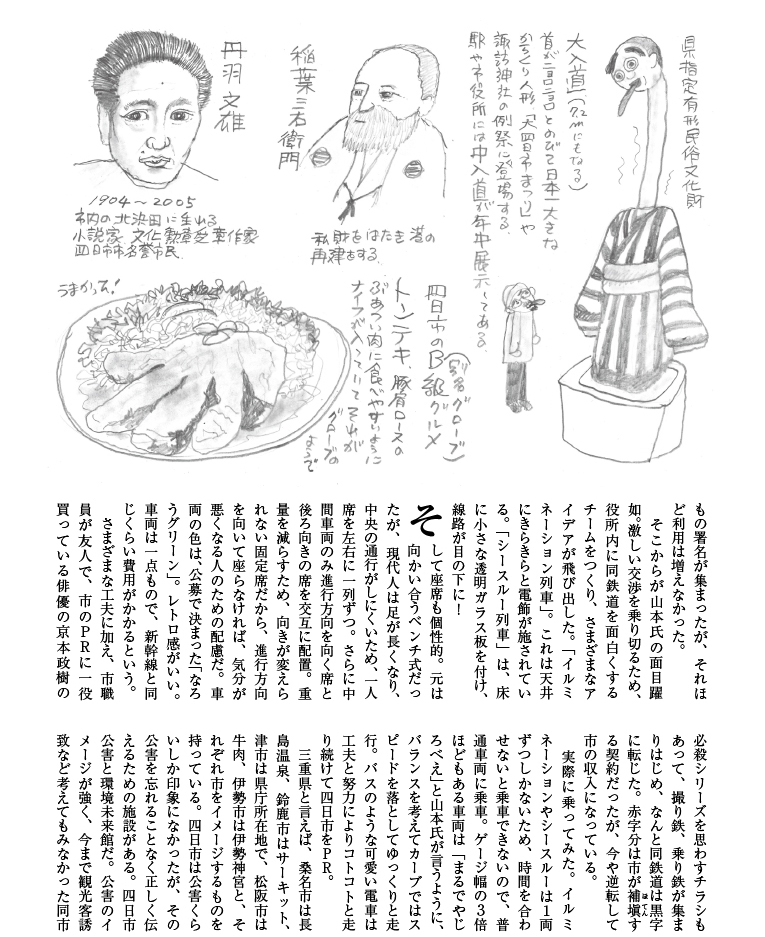 県指定有形民俗文化財
大入道(7.2mにもなる)
首が二言三言とのびて日本一大きな
からくり人形、「大四日市まつり」や
諏訪神社の例祭に登場する。
駅や市役所には中入道が年中展示してある。
稲葉三右衛門
私財をはたき港の
再建をする。
丹羽文雄
1904~2005
市内の北浜田に生れる
小説家 文化勲章受章作家
四日市市名誉市民
四日市のB級グルメ
(別名グローブ)
トンテキ、豚肩ロースの
ぶあつい肉に食べやすいように
ナイフが入っていてそれが
グローブの
ようで
うまかった!
もの署名が集まったが、それほ
ど利用は増えなかった。
そこからが山本氏の面目躍
如。激しい交渉を乗り切るため、
役所内に同鉄道を面白くする
チームをつくり、さまざまなア
イデアが飛び出した。「イルミ
ネーション列車」。これは天井
にきらきらと電飾が施されてい
る。「シースルー列車」は、床
に小さな透明ガラス板を付け、
線路が目の下に!
そして座席も個性的。元は
向かい合うベンチ式だっ
たが、現代人は足が長くなり、
中央の通行がしにくいため、一人
席を左右に一列ずつ。さらに中
間車両のみ進行方向を向く席と
後ろ向きの席を交互に配置。重
量を減らすため、向きが変えら
れない固定席だから、進行方向
を向いて座らなければ、気分が
悪くなる人のための配慮だ。車
両の色は、公募で決まった「なろ
うグリーン」。レトロ感がいい。
車両は一点もので、新幹線と同
じくらい費用がかかるという。
さまざまな工夫に加え、市職
員が友人で、市のPRに一役
買っている俳優の京本政樹の
必殺シリーズを思わすチラシも
あって、撮り鉄、乗り鉄が集ま
りはじめ、なんと同鉄道は黒字
に転じた。赤字分は市が補塡す
る契約だったが、今や逆転して
市の収入になっている。
実際に乗ってみた。イルミ
ネーションやシースルーは1両
ずつしかないため、時間を合わ
せないと乗車できないので、普
通車両に乗車。ゲージ幅の3倍
ほどもある車両は「まるでやじ
ろべえ」と山本氏が言うように、
バランスを考えてカーブではス
ピードを落としてゆっくりと走
行。バスのような可愛い電車は
工夫と努力によりコトコトと走
り続けて四日市をPR。
三重県と言えば、桑名市は長
島温泉、鈴鹿市はサーキット、
津市は県庁所在地で、松阪市は
牛肉、伊勢市は伊勢神宮と、そ
れぞれ市をイメージするものを
持っている。四日市は公害くら
いしか印象になかったが、その
公害を忘れることなく正しく伝
えるための施設がある。四日市
公害と環境未来館だ。公害のイ
メージが強く、今まで観光客誘
致など考えてもみなかった同市